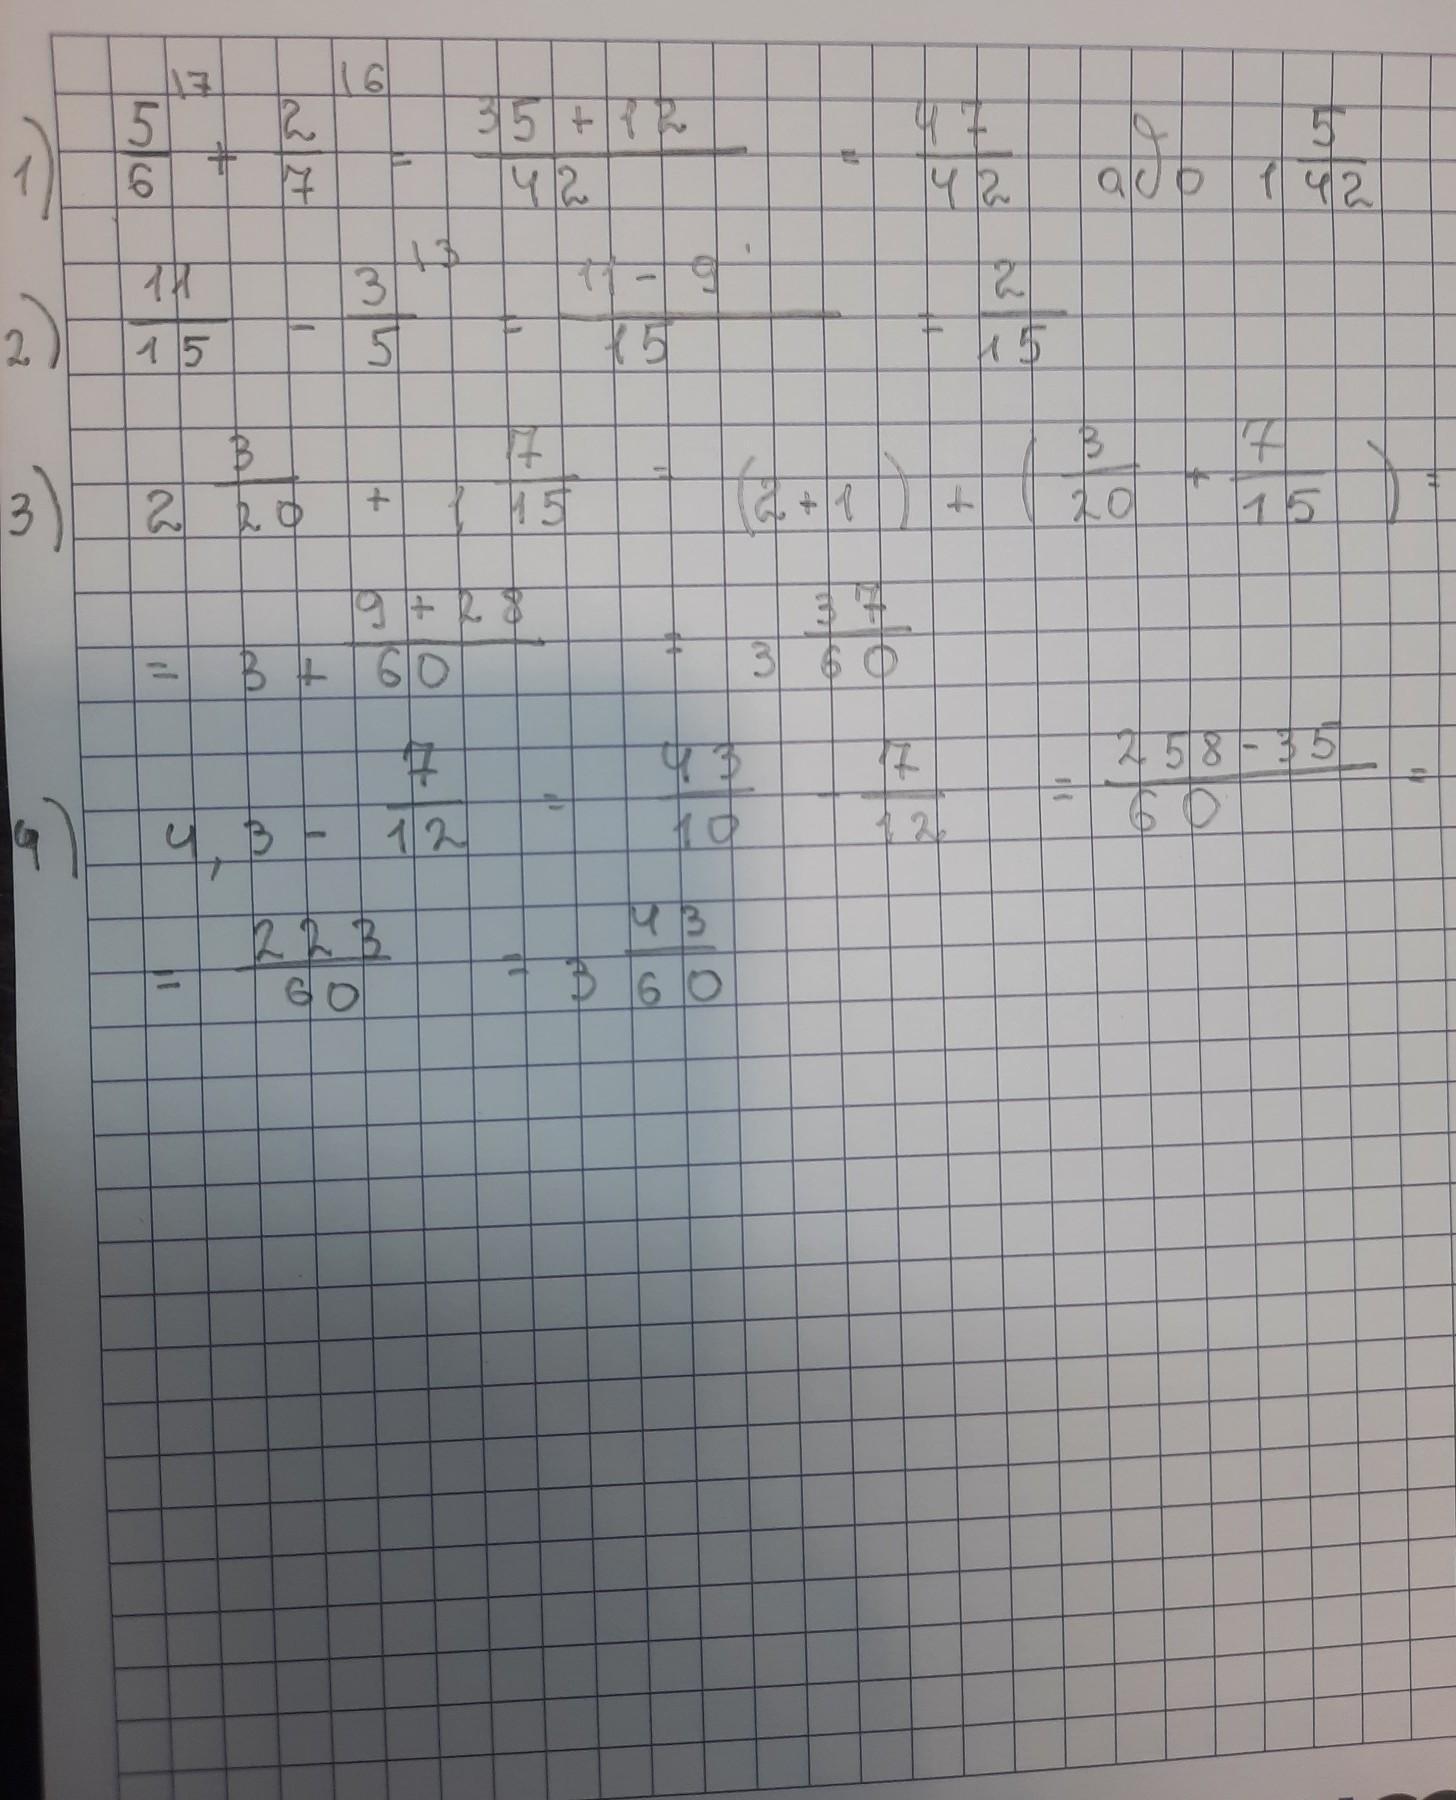 1) 5/6 |7 + 2/7 |6 = 35+12/42 = 47/42 або 1 5/42
2) 11/15 - 3/5 |3 = 11-9/15 = 2/15
3) 2 3/20 + 1 7/15 = (2+1) + (3/20 + 7/15) =
= 3 + 9+28/60 = 3 37/60
4) 4,3 - 7/12 = 43/10 - 7/12 = 258-35/60 =
= 223/60 = 3 43/60